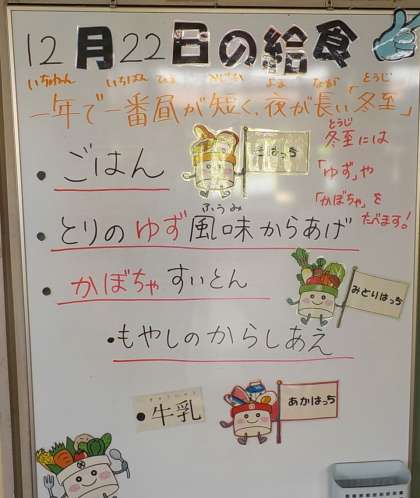 12月22日の給食
いちねん いちばん ひる みじか よる なが とうじ
一年で一番昼が短く、夜が長い「冬至」
とうじ
冬至には
「ゆず」や
「かぼちゃ」を
たべます。
きはっち
・ごはん
ふうみ
・とりのゆず風味からあげ
・かぼちゃすいとん
みどりはっち
・もやしのからしあえ
・牛乳
あかはっち